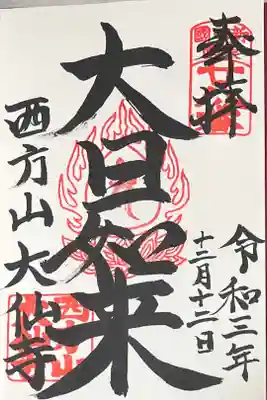 奉拝
令和三年
十二月十二日
大日如来
西方山大仙寺